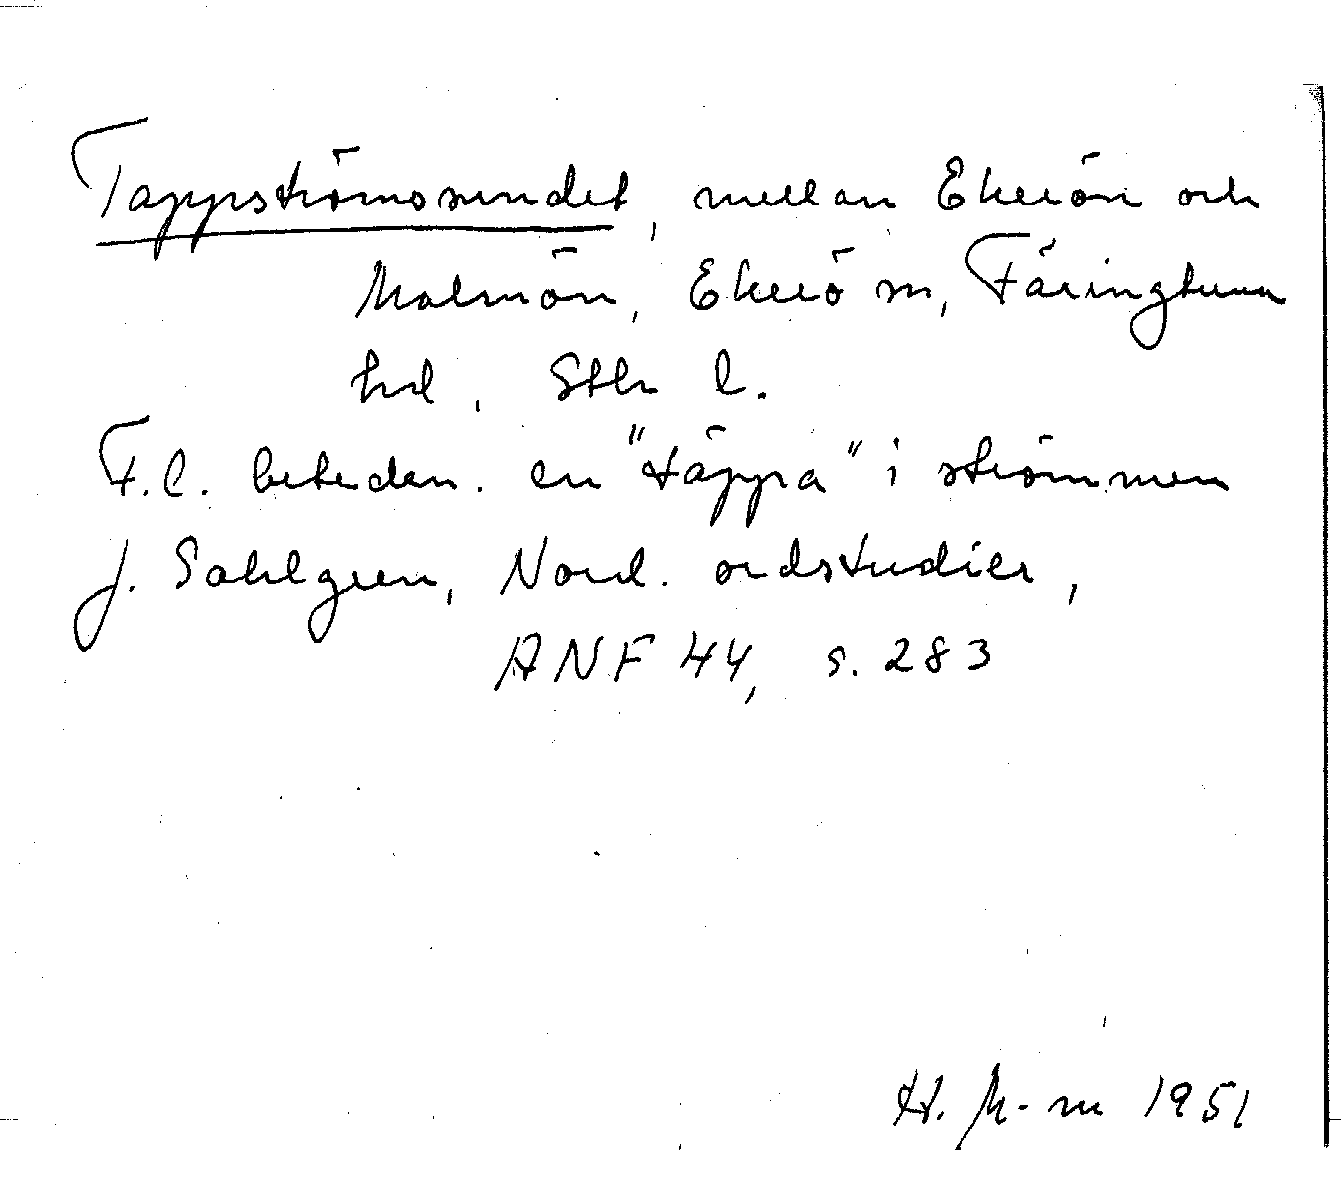 Tappströmssundet, mellan Ekerön och
Malmön, Ekerö sn, Färingtuna
hd, Sthr l.
F.l. betedan. en "täppa" i strömmen
J. Sahlgren, Nord. ordstudier,
ANF 44, s. 283
H. M-m 1951